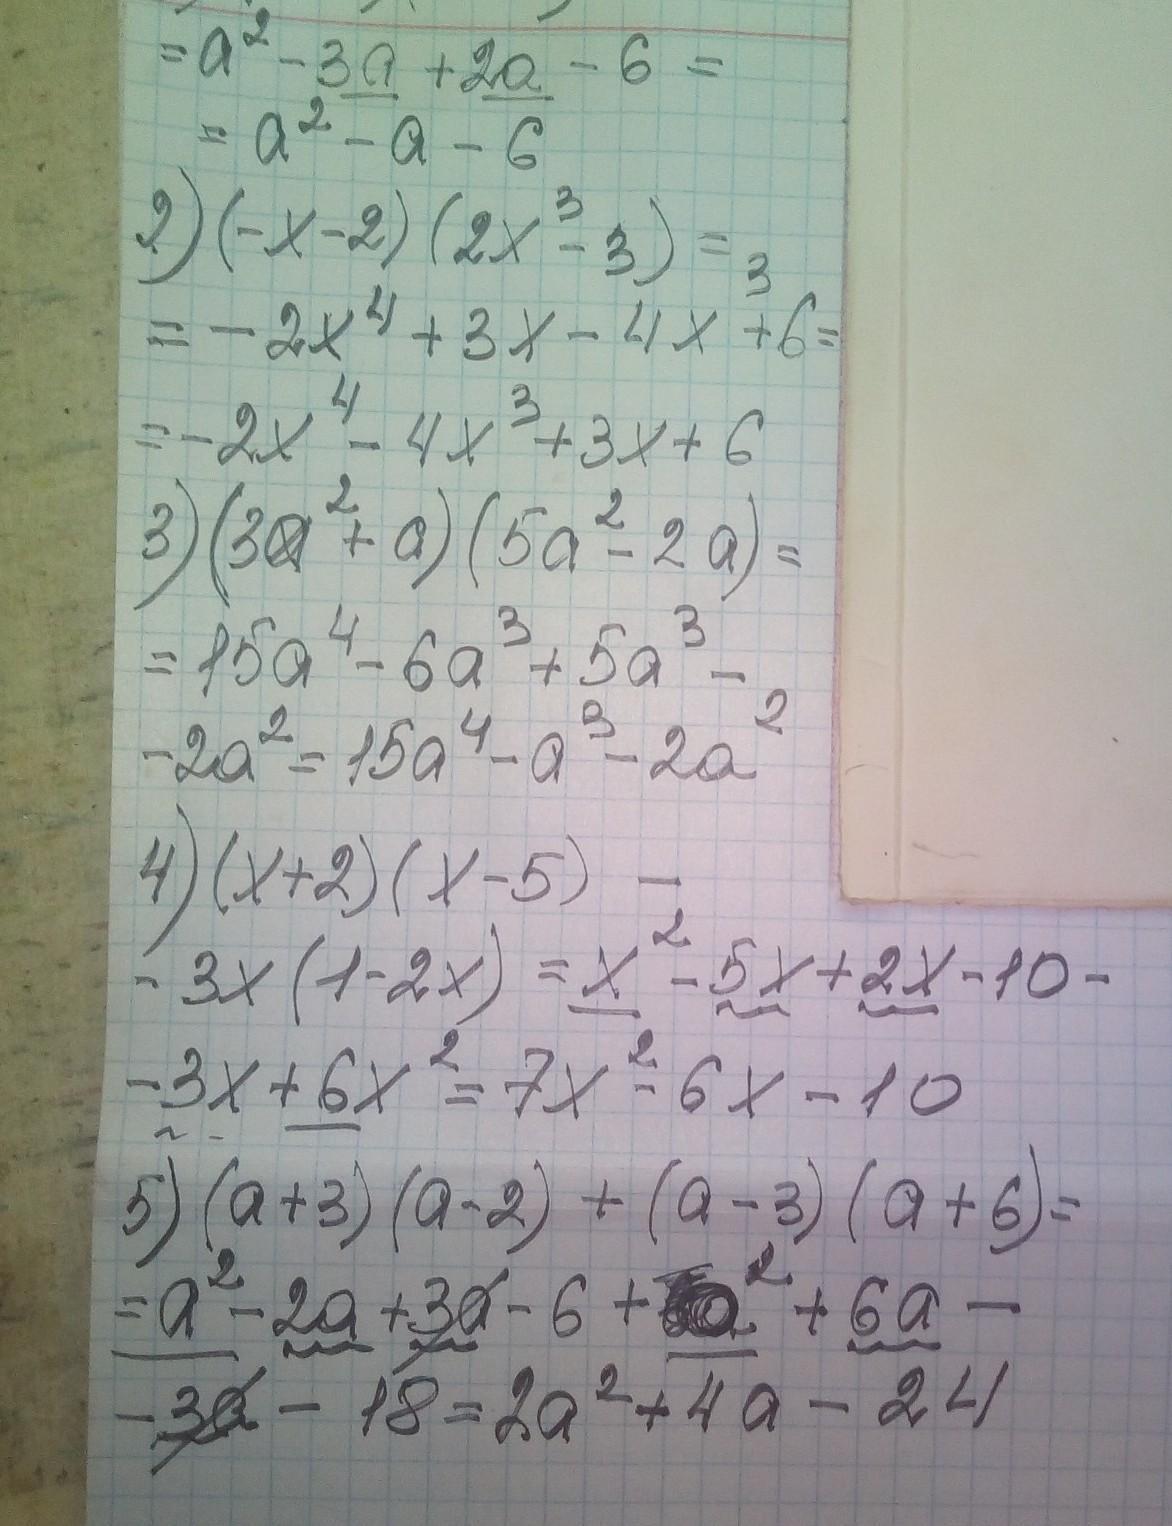 = a² - 3a + 2a - 6 =
= a² - a - 6
2) (-x-2) (2x³ - 3) =
= - 2x⁴ + 3x - 4x³ + 6 =
= - 2x⁴ - 4x³ + 3x + 6
3) (3a² + a) (5a² - 2a) =
= 15a⁴ - 6a³ + 5a³ -
- 2a² = 15a⁴ - a³ - 2a²
4) (x+2) (x-5) -
- 3x (1-2x) = x² - 5x + 2x - 10 -
- 3x + 6x² = 7x² - 6x - 10
5) (a+3) (a-2) + (a-3) (a+6) =
= a² - 2a + 3a - 6 + a² + 6a -
- 3a - 18 = 2a² + 4a - 24